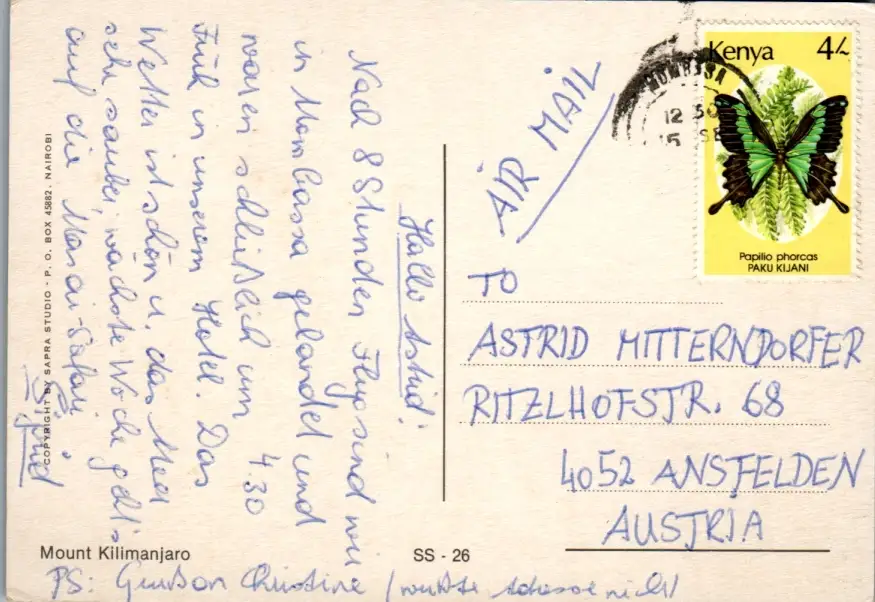 Hallo Astrid!
Nach 8 Stunden Flug sind wir
in Mombassa gelandet und
waren schließlich um 4.30
Früh in unserem Hotel. Das
Wetter ist schön u. das Meer
sehr sauber, nächste Woche geht's
auf die Masai-Safari.
Sigrid
PS: Gruß an Christine (wußte Adresse nicht)
Mount Kilimanjaro
SS - 26
COPYRIGHT BY SAPRA STUDIO - P. O. BOX 45882, NAIROBI
AIR MAIL
MOMBASA
12 30
15 SE
Kenya 4/-
Papilio phorcas
PAKU KIJANI
TO
ASTRID MITTERNDORFER
RITZLHOFSTR. 68
4052 ANSFELDEN
AUSTRIA